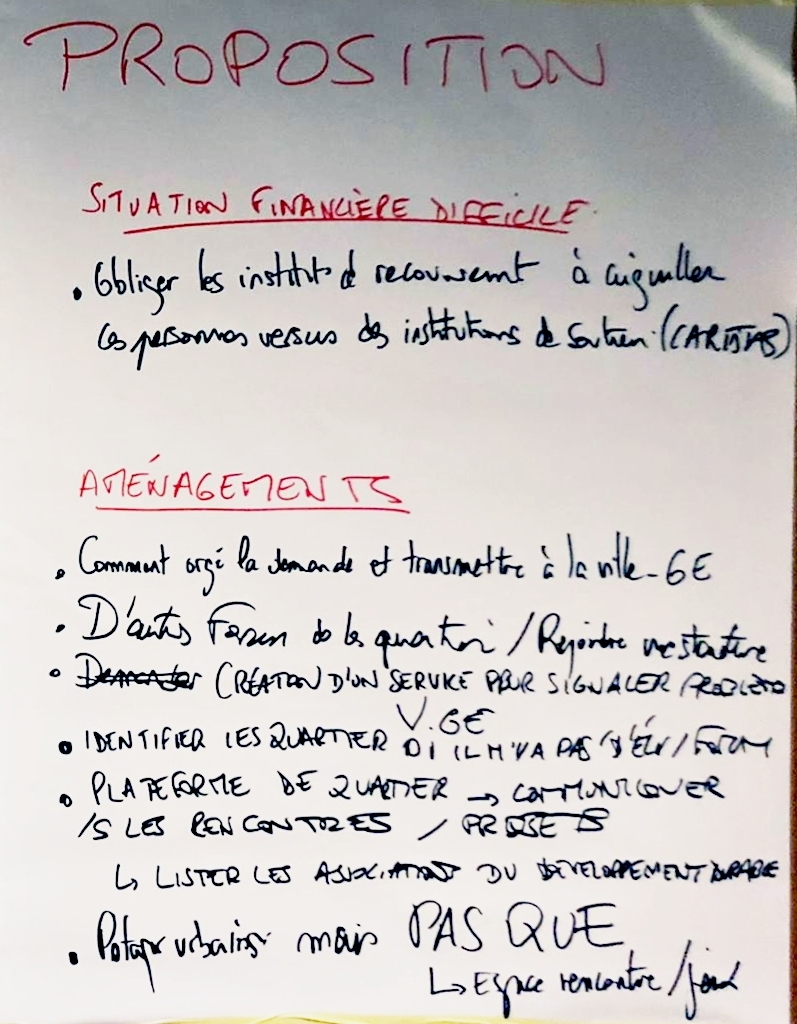 PROPOSITION
SITUATION FINANCIÈRE DIFFICILE
• Obliger les instituts d recouvrement à aiguiller
les personnes versus des institutions de soutien. (CARITAS)
AMÉNAGEMENTS
• Comment orgé la demande et transmettre à la ville - GE
• D'autres Forum de quartier / Rejoindre
• CRÉATION D'UN SERVICE POUR SIGNALER PROBLÈME
V. GE
• IDENTIFIER LES QUARTIER OÙ IL N'Y A PAS D' / FORUM
• PLATEFORME DE QUARTIER → COMMUNIQUER
/S LES RENCONTRES / PROJETS
↳ LISTER LES ASSOCIATIONS DU DÉVELOPPEMENT DURABLE
• Potager mais PAS QUE
↳ Espace rencontre /